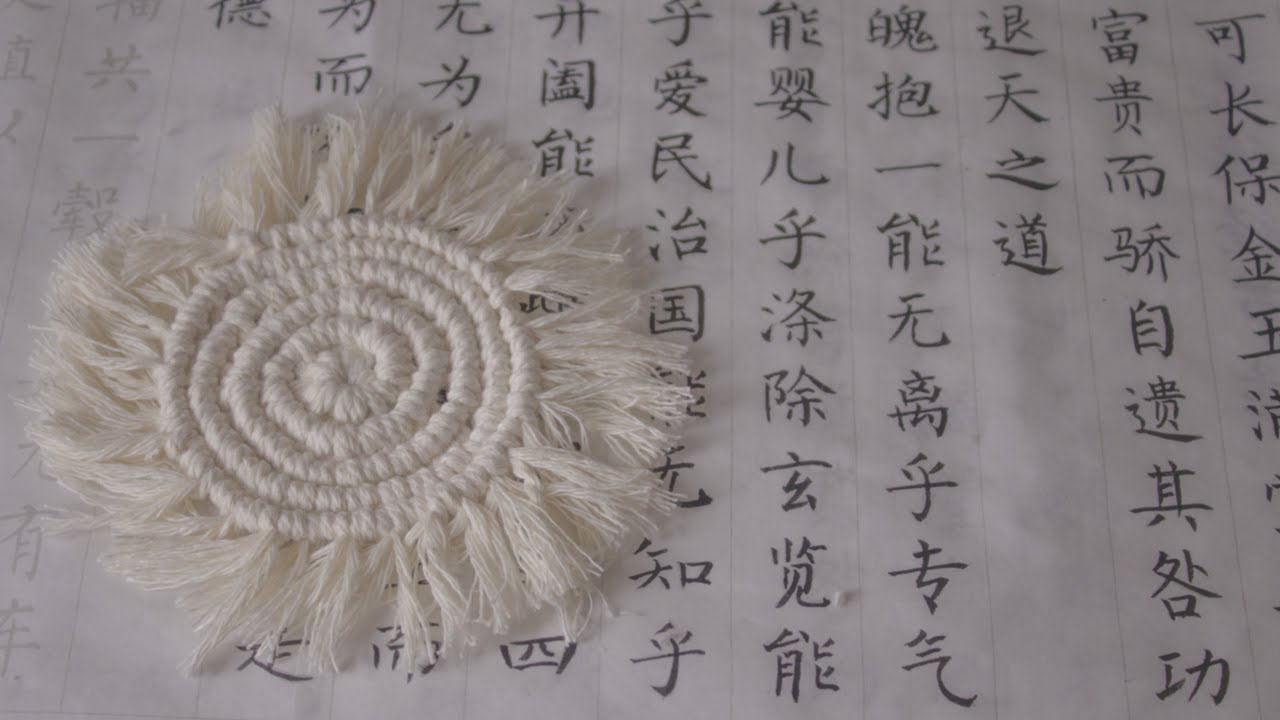 可长保金玉满
富贵而骄自遗其咎功
退天之道
魄抱一能无离乎专气
能婴儿乎涤除玄览能
乎爱民治国能无知乎
开阖能四
无为而
为而是
德
辐共一毂
有车